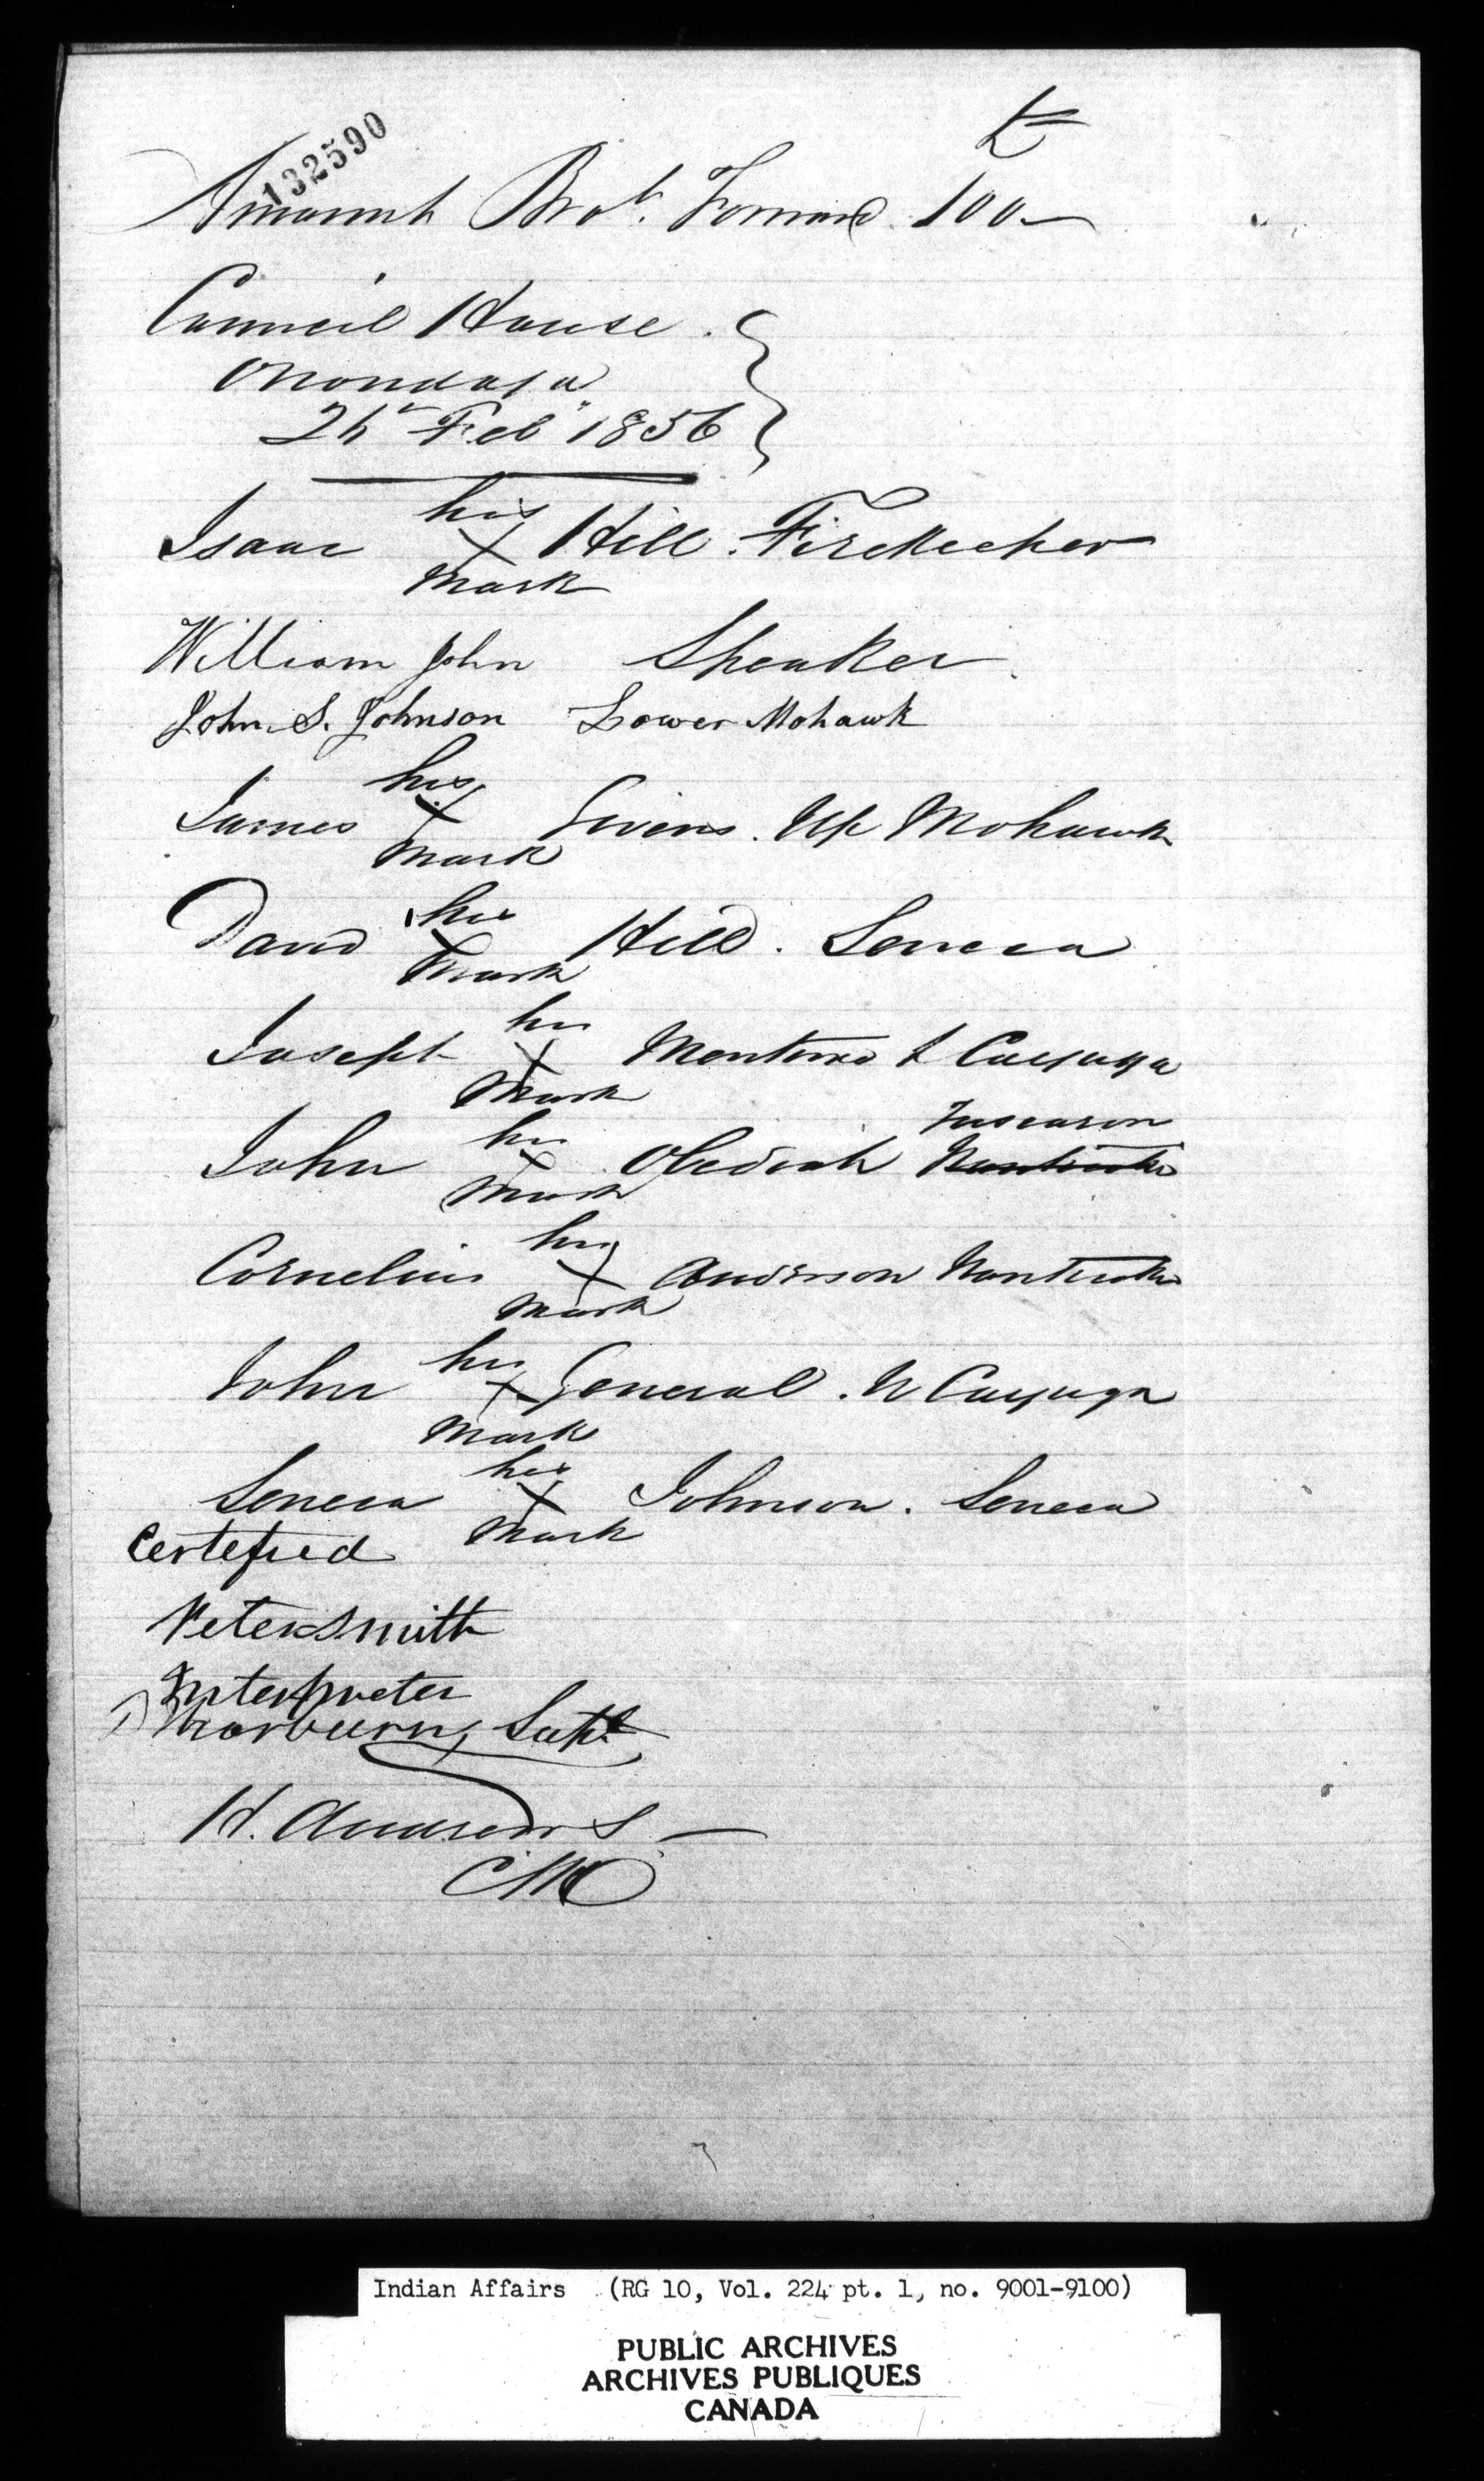 132590
£
Amount Brot. Forward 100—
Council House
Onondaga
Feb 1856
his
Isaac X Hill. Firekeeper
mark
William John Speaker
John S. Johnson Lower Mohawk
his
James X Givens. Up Mohawk
mark
his
David X Hill. Seneca
mark
his
Joseph X Monture L Cayuga
mark
Tuscarora
his
John X Obediah Nanticoke
mark
his
Cornelius X Anderson Nanticoke
mark
his
John X General. U Cayuga
mark
his
Seneca X Johnson. Seneca
mark
Certefied
Peter Smith
Interpreter
D Thorburn, Supt
H. Andrews —
Indian Affairs (RG 10, Vol. 224 pt. 1, no. 9001-9100)
PUBLIC ARCHIVES
ARCHIVES PUBLIQUES
CANADA